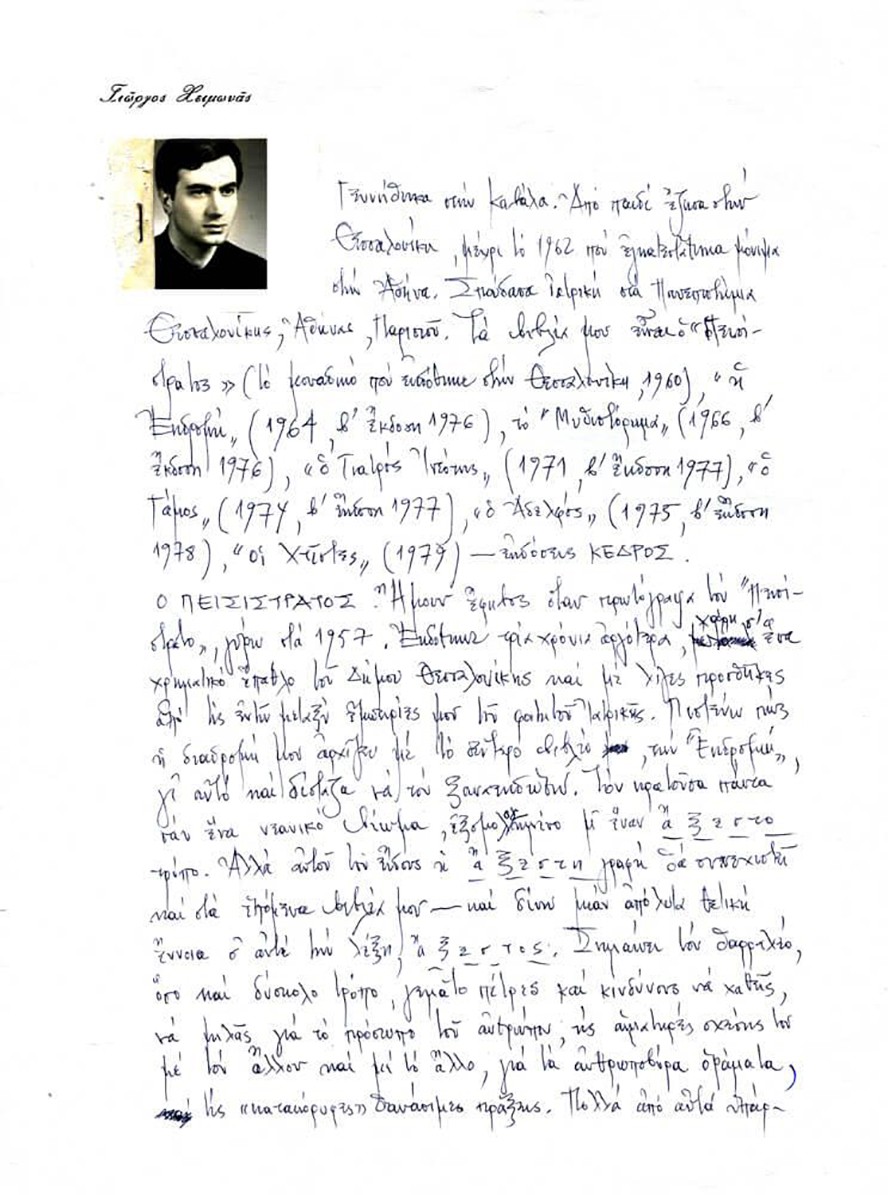 Γιῶργος Χειμωνᾶς
Γεννήθηκα στήν Καβάλα. Ἀπό παιδί ἔζησα στήν
Θεσσαλονίκη, μέχρι τό 1962 πού ἐγκαταστάθηκα μόνιμα
στήν Ἀθήνα. Σπούδασα Ἰατρική στά Πανεπιστήμια
Θεσσαλονίκης, Ἀθήνας, Παρισιοῦ. Τά βιβλία μου εἶναι ὁ "Πεισί-
στρατος» (τό μοναδικό πού ἐκδόθηκε στήν Θεσσαλονίκη, 1960), "ἡ
Ἐκδρομή„ (1964, β' ἔκδοση 1976), τό "Μυθιστόρημα„ (1966, β'
ἔκδοση 1976), "ὁ Γιατρός Ἰνεότης„ (1971, β' ἔκδοση 1977), "ὁ
Γάμος„ (1974, β' ἔκδοση 1977), "ὁ Ἀδελφός„ (1975, β' ἔκδοση
1978), "οἱ Χτίστες„ (1979) — ἐκδόσεις ΚΕΔΡΟΣ.
Ο ΠΕΙΣΙΣΤΡΑΤΟΣ. Ἤμουν ἔφηβος ὅταν πρωτόγραψα τόν "Πεισί-
στρατο„, γύρω στά 1957. Ἐκδόθηκε τρία χρόνια ἀργότερα, χάρη σ' ἕνα
χρηματικό ἔπαθλο τοῦ Δήμου Θεσσαλονίκης καί μέ λίγες προσθῆκες
ἀπό τίς ἐντῶ μεταξύ ἐμπειρίες μου τοῦ φοιτητοῦ Ἰατρικῆς. Πιστεύω πώς
ἡ διαδρομή μου ἀρχίζει μέ τό δεύτερο βιβλίο, τήν "Ἐκδρομή„,
γι' αὐτό καί δίσταζα νά τόν ξαναεκδώσω. Τόν κρατοῦσα πάντα
σάν ἕνα νεανικό βίωμα, ἐξομολογημένο μ' ἕναν ἄξεστο
τρόπο. Ἀλλά αὐτοῦ τοῦ εἴδους ἡ ἄξεστη γραφή θά συνεχιστῆ
καί στά ἑπόμενα βιβλία μου — καί δίνω μιάν ἀπόλυτα θετική
ἔννοια σ' αὐτή τήν λέξη, ἄξεστος. Σημαίνει τόν θαρραλέο,
ὅσο καί δύσκολο τρόπο, γεμᾶτο πέτρες καί κινδύνους νά χαθῆς,
νά μιλᾶς γιά τό πρόσωπο τοῦ ἀνθρώπου, τίς αἱματηρές σχέσεις του
μέ τόν ἄλλον καί μέ τό ἄλλο, γιά τά ἀνθρωποβόρα ὁράματα,
τίς «κατακόρυφες» θανάσιμες πράξεις. Πολλά ἀπό αὐτά ὑπάρ-